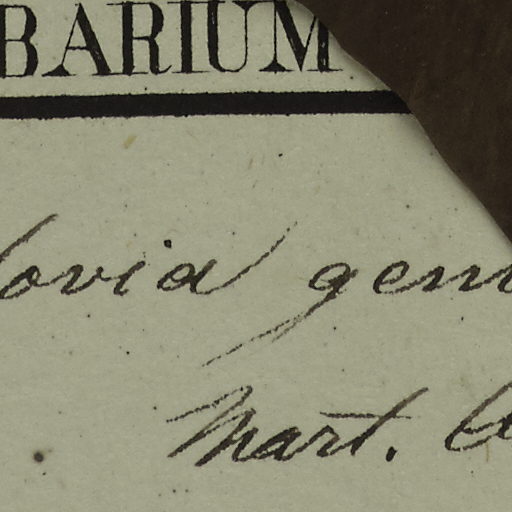 BARIUM
lovia gem
Mart.